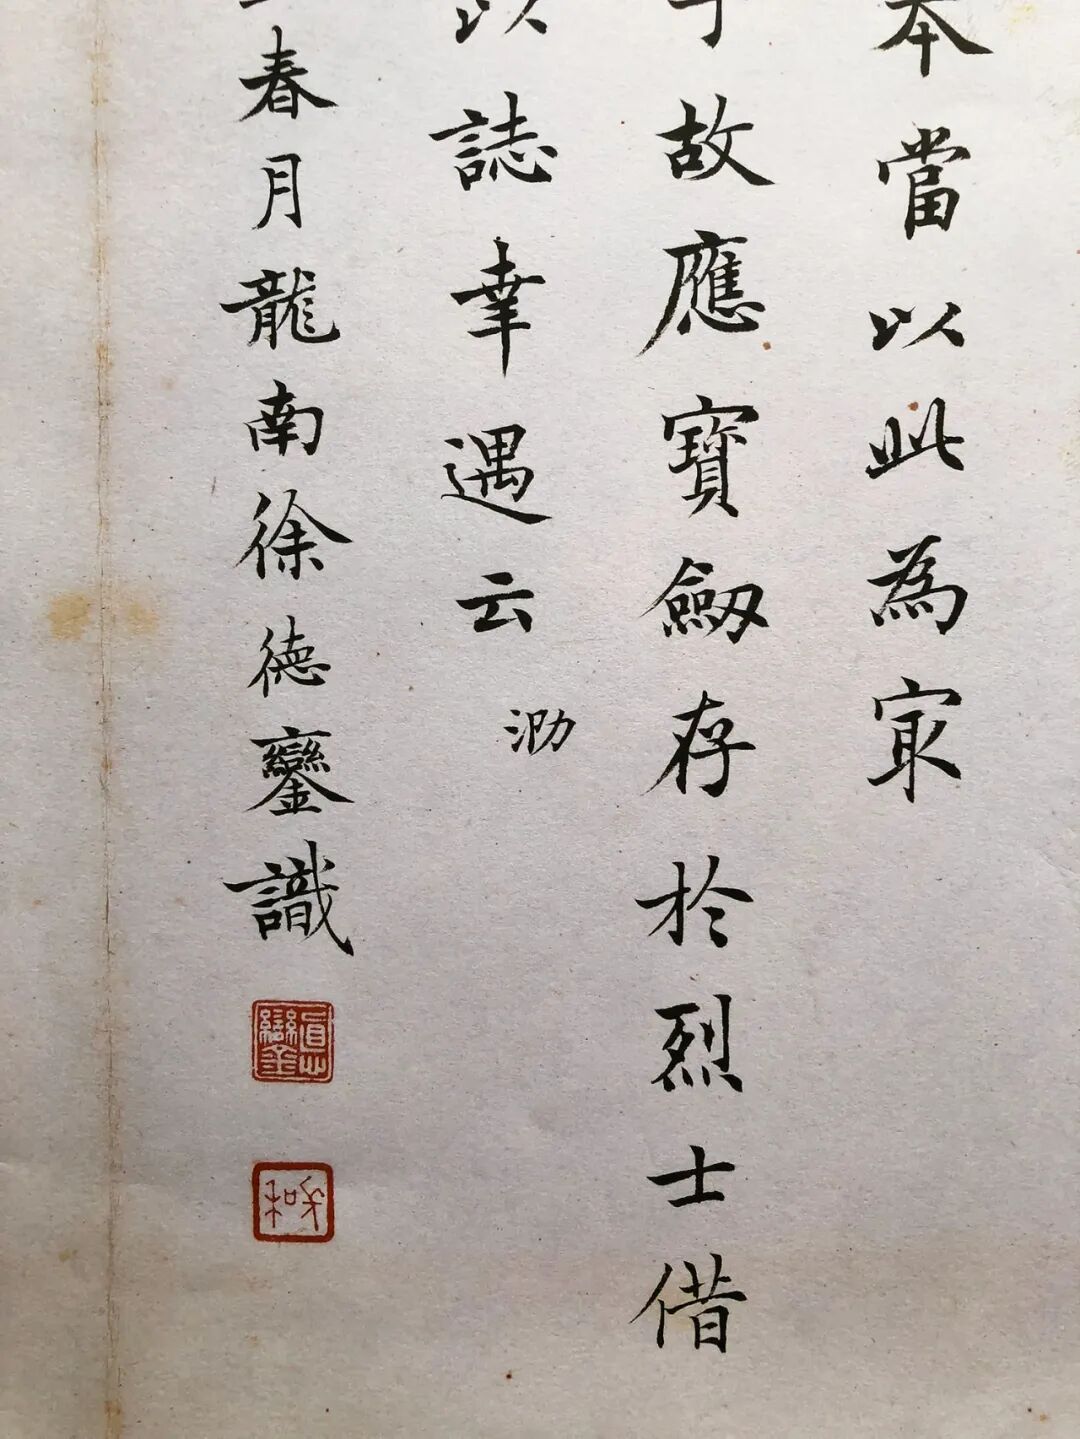 本當以此為冣
于故應寶劒存於烈士偕
以誌幸遇云 泐
春月龍南徐德鑾識